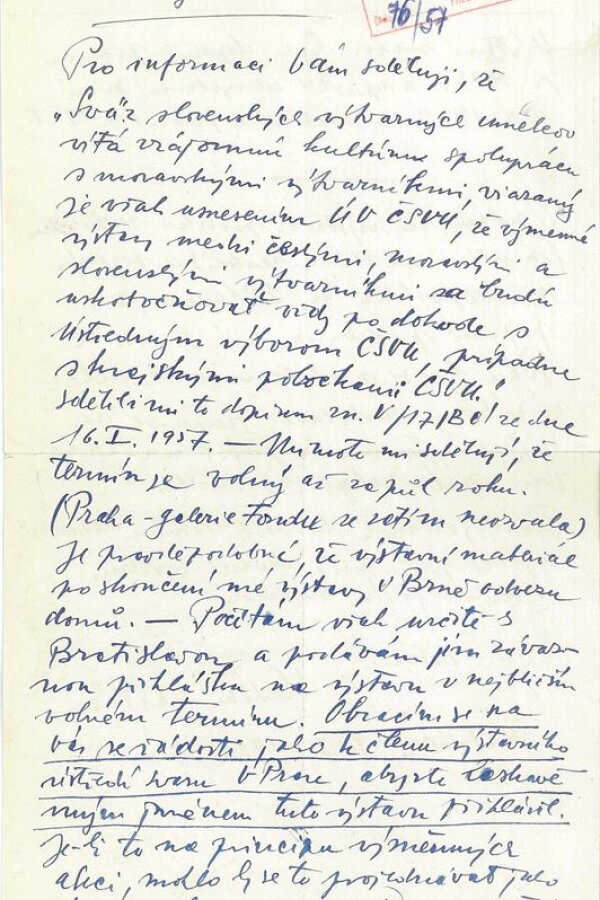 76/57
Pro informaci Vám sděluji, že
„Sväz slovenských výtvarných umelcov
víta vzájomnú kultúrnu spoluprácu
s moravskými výtvarníkmi, viazaný
je však usnesením ÚV ČSVU, že výmenné
výstavy medzi českými, moravskými a
slovenskými výtvarníkmi sa budú
uskutočňovať vždy po dohode s
Ústredným výborom ČSVU, prípadne
s krajskými pobočkami ČSVU."
Sdělili mi to dopisem zn. V/17/Be/ ze dne
16. I. 1957. — Mimoto mi sdělují, že
termín je volný až za půl roku.
(Praha - galerie Fondu se zatím neozvala)
Je pravděpodobné, že výstavní materiál
po skončení mé výstavy v Brně odvezu
domů. — Počítám však určitě s
Bratislavou a podávám jim závaz-
nou přihlášku na výstavu v nejbližším
volném termínu. Obracím se na
Vás se žádostí, jako k členu výstavního
ústředí svazu v Praze, abyste laskavě
mým jménem tuto výstavu přihlásil.
Je-li to na principu výměnných
akcí, mohlo by se to projednávat jako